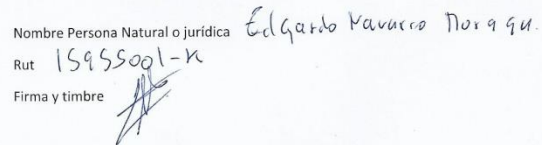 Nombre Persona Natural o jurídica Edgardo Navarro Moraga.
Rut 15955001-K
Firma y timbre